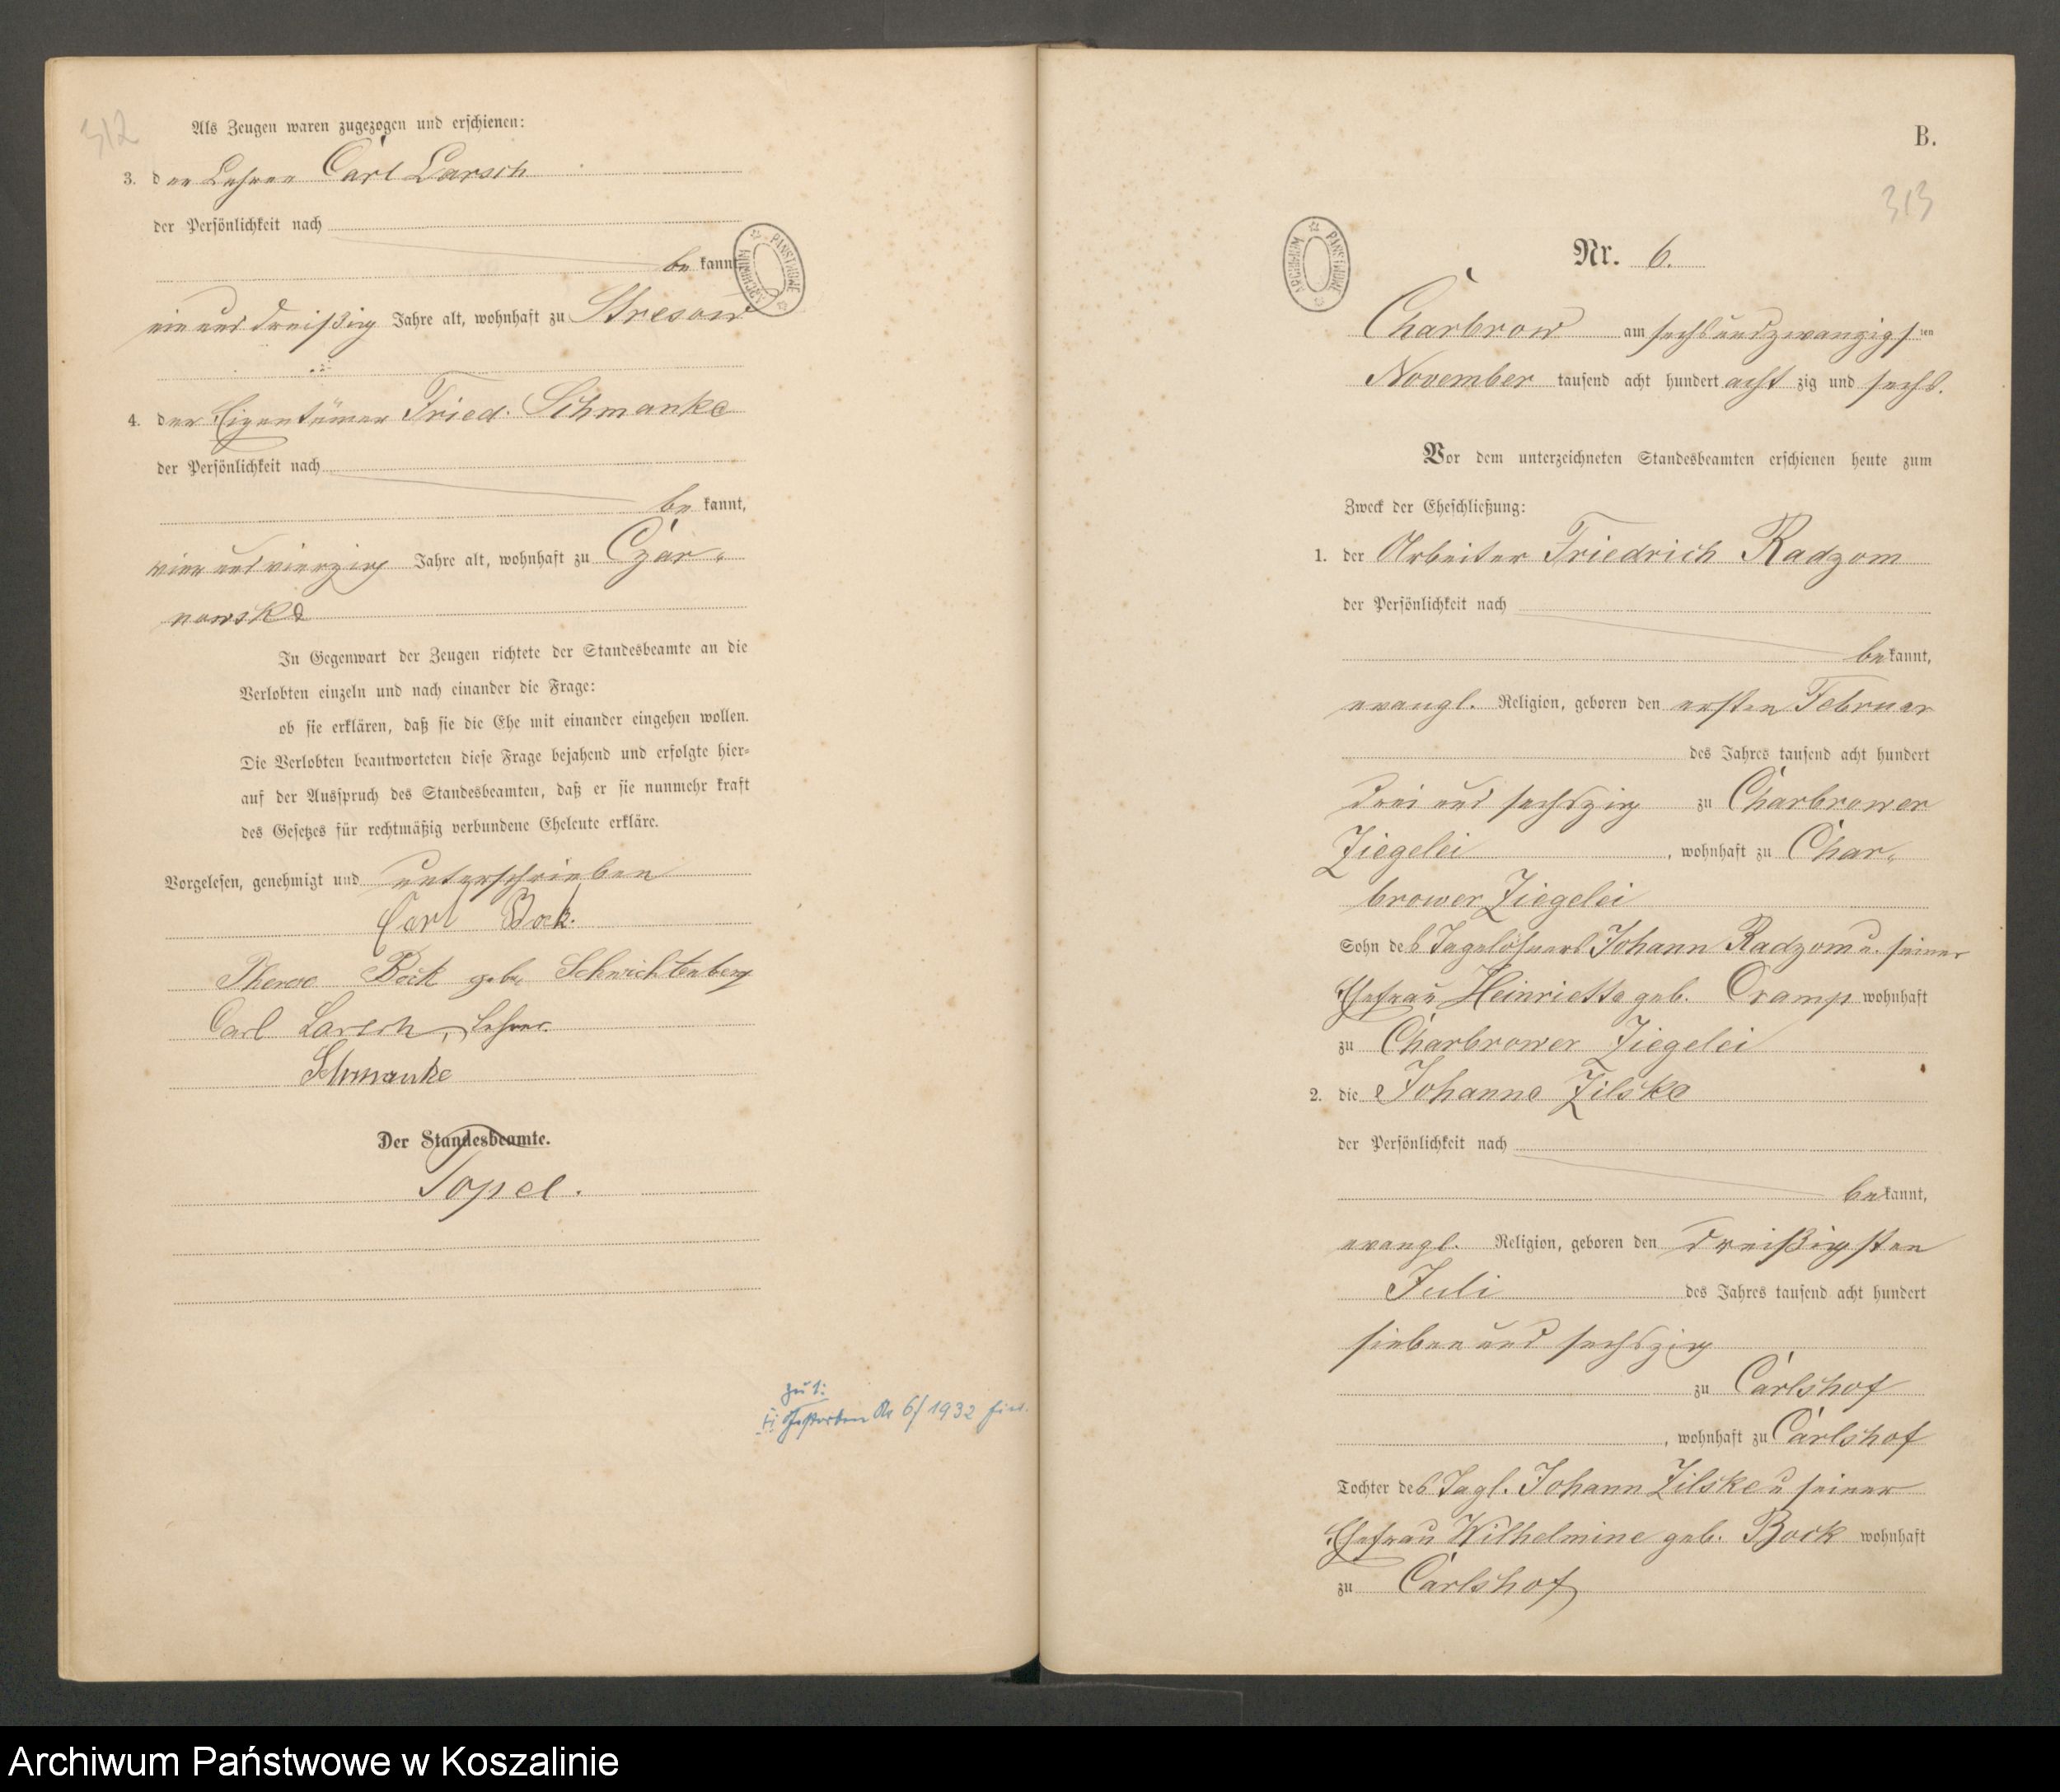 312
Als Zeugen waren zugezogen und erschienen:
3. der Lehrer Carl Larsch
der Persönlichkeit nach
bekannt,
ein und dreißig Jahre alt, wohnhaft zu Stresow
4. der Eigentümer Fried. Schmanke
der Persönlichkeit nach
be kannt,
vier und vierzig Jahre alt, wohnhaft zu Czar-
nowske
In Gegenwart der Zeugen richtete der Standesbeamte an die
Verlobten einzeln und nach einander die Frage:
ob sie erklären, daß sie die Ehe mit einander eingehen wollen.
Die Verlobten beantworteten diese Frage bejahend und erfolgte hier-
auf der Ausspruch des Standesbeamten, daß er sie nunmehr kraft
des Gesetzes für rechtmäßig verbundene Eheleute erkläre.
Vorgelesen, genehmigt und unterschrieben
Carl Bock.
Therese Bock geb. Schwichtenberg
Carl Larsch, Lehrer.
Schmanke
Der Standesbeamte.
Topel.
zu 1:
gestorben Nr 6/1932
ARCHIWUM PAŃSTWOWE
B.
313
ARCHIWUM PAŃSTWOWE
Nr. 6.
Charbrow am sechsundzwanzigsten
November tausend acht hundert acht zig und sechs.
Vor dem unterzeichneten Standesbeamten erschienen heute zum
Zweck der Eheschließung:
1. der Arbeiter Friedrich Radzom
der Persönlichkeit nach
bekannt,
evangl. Religion, geboren den ersten Februar
des Jahres tausend acht hundert
drei und sechszig zu Charbrower
Ziegelei, wohnhaft zu Char-
brower Ziegelei
Sohn des Tagelöhners Johann Radzom u. seiner
Ehefrau Heinriette geb. Cramp wohnhaft
zu Charbrower Ziegelei
2. die Johanne Zilske
der Persönlichkeit nach
bekannt,
evangl. Religion, geboren den dreißigsten
Juli des Jahres tausend acht hundert
sieben und sechszig
zu Carlshof
, wohnhaft zu Carlshof
Tochter des Tagl. Johann Zilske u seiner
Ehefrau Wilhelmine geb. Bock wohnhaft
zu Carlshof
Archiwum Państwowe w Koszalinie